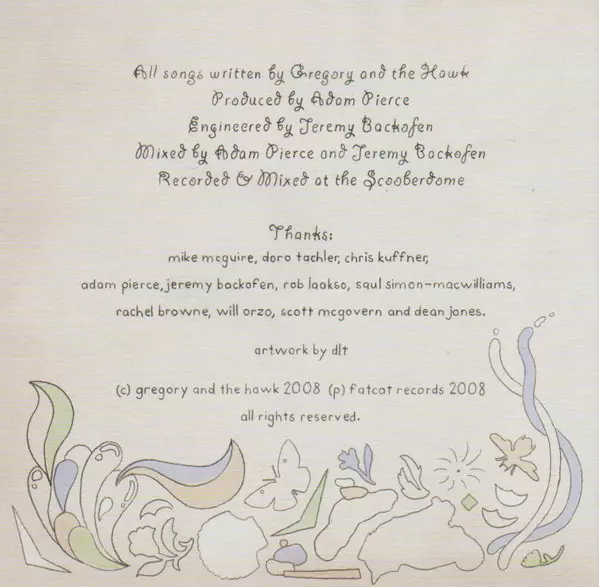 All songs written by Gregory and the Hawk
Produced by Adam Pierce
Engineered by Jeremy Backofen
Mixed by Adam Pierce and Jeremy Backofen
Recorded & Mixed at the Scooberdome
Thanks:
mike mcguire, doro tachler, chris kuffner,
adam pierce, jeremy backofen, rob laakso, saul simon-macwilliams,
rachel browne, will orzo, scott mcgovern and dean jones.
artwork by dlt
(c) gregory and the hawk 2008 (p) fatcat records 2008
all rights reserved.